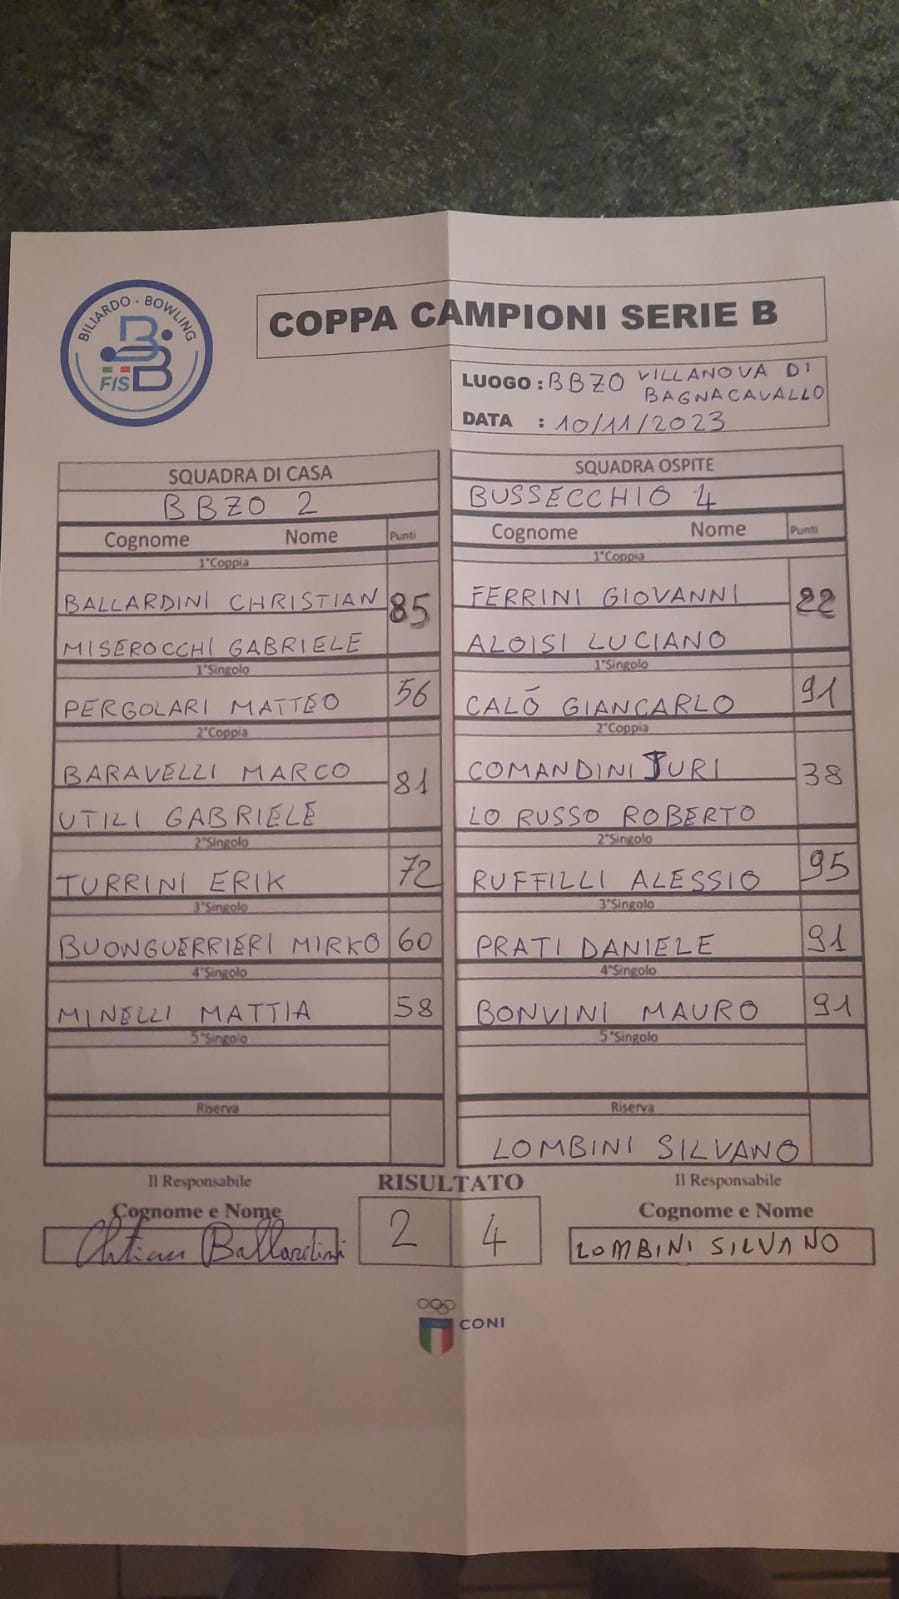 BILIARDO · BOWLING
FISBB
COPPA CAMPIONI SERIE B
LUOGO : BBZO VILLANOVA DI
BAGNACAVALLO
DATA : 10/11/2023
SQUADRA DI CASA
BBZO 2
Cognome Nome Punti
1°Coppia
BALLARDINI CHRISTIAN 85
MISEROCCHI GABRIELE
1°Singolo
PERGOLARI MATTEO 56
2°Coppia
BARAVELLI MARCO 81
UTILI GABRIELE
2°Singolo
TURRINI ERIK 72
3°Singolo
BUONGUERRIERI MIRKO 60
4°Singolo
MINELLI MATTIA 58
5°Singolo
Riserva
SQUADRA OSPITE
BUSSECCHIO 4
Cognome Nome Punti
1°Coppia
FERRINI GIOVANNI 22
ALOISI LUCIANO
1°Singolo
CALÓ GIANCARLO 91
2°Coppia
COMANDINI JURI 38
LO RUSSO ROBERTO
2°Singolo
RUFFILLI ALESSIO 95
3°Singolo
PRATI DANIELE 91
4°Singolo
BONVINI MAURO 91
5°Singolo
Riserva
LOMBINI SILVANO
Il Responsabile
Cognome e Nome
Christian Ballardini
RISULTATO
2 4
Il Responsabile
Cognome e Nome
LOMBINI SILVANO
CONI